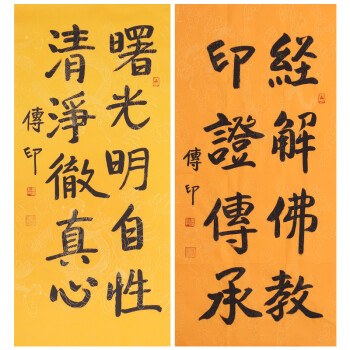 曙光明自性
清淨徹真心
傳印
経解佛教
印證傳承
傳印